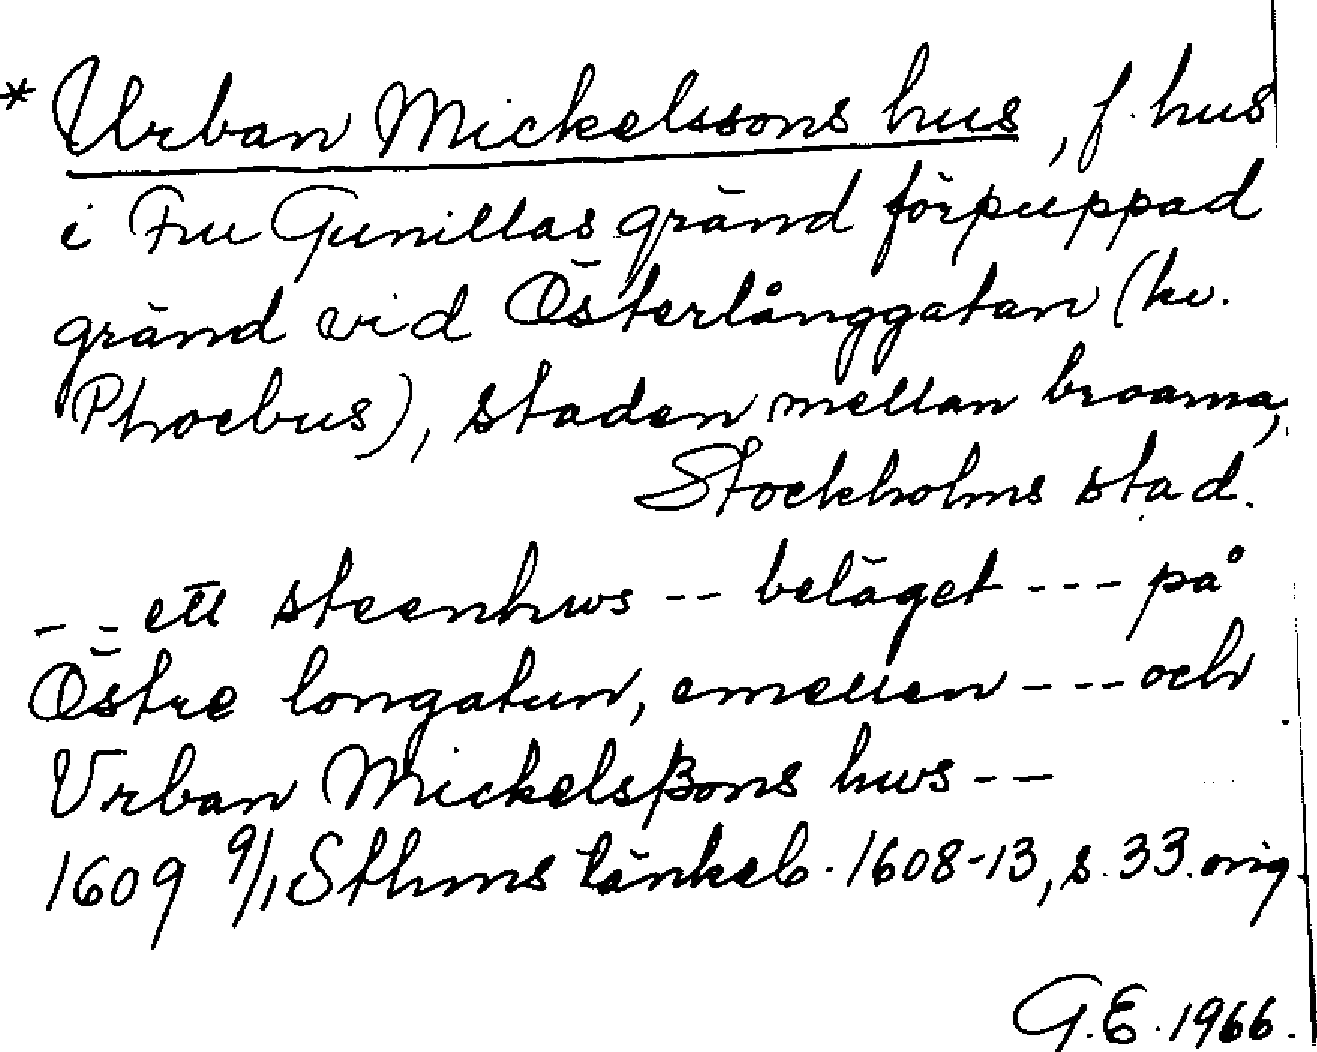 * Urban Mickelssons hus, f. hus
i Fru Gunillas gränd förpuppad
gränd vid Österlånggatan (kv.
Phoebus), staden mellan broarna,
Stockholms stad.
-- ett steenhws -- beläget --- på
Östre longatun, emellen --- och
Vrban Mickelsßons hws --
1609 9/1 Sthms tänkeb. 1608-13, s. 33. orig.
G.E. 1966.